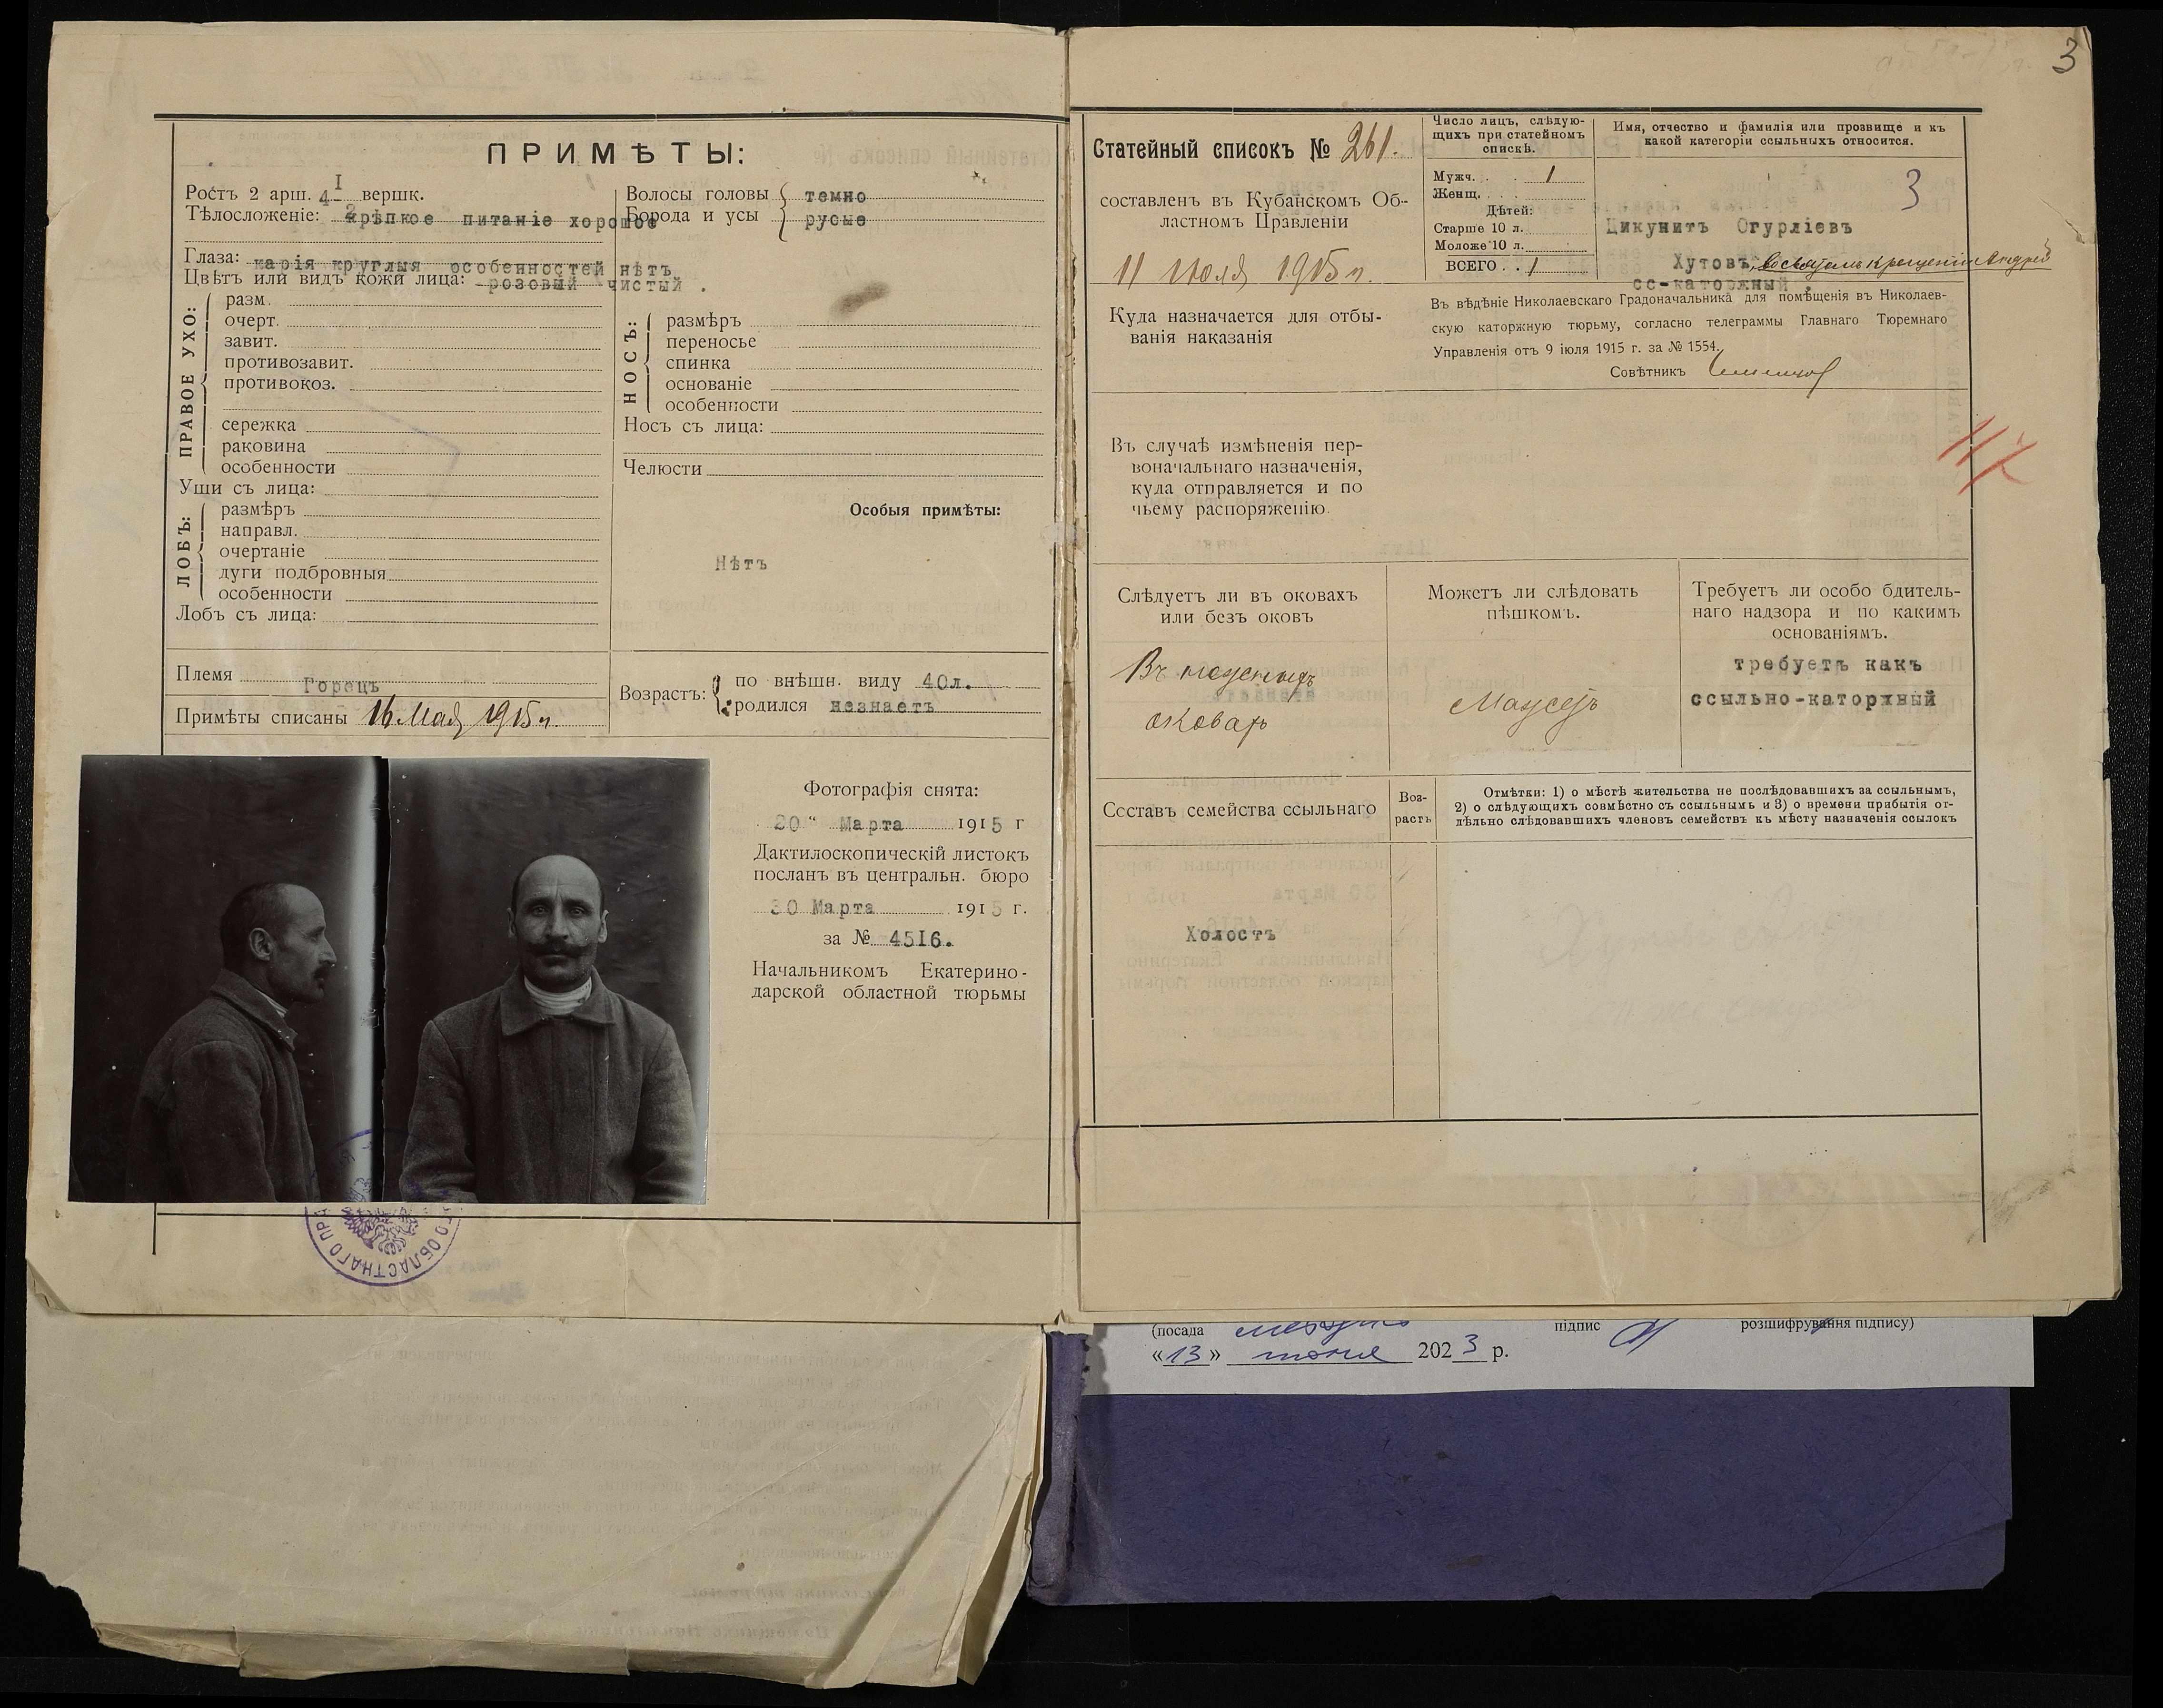 ПРИМѢТЫ:
Ростъ 2 арш. 4 1/2 вершк.
Тѣлосложеніе: крѣпкое питаніе хорошое
Глаза: карія круглыя особенностей нѣтъ
Цвѣтъ или видъ кожи лица: розовый чистый .
Волосы головы } темно
Борода и усы } русые
ПРАВОЕ УХО:
разм.
очерт.
завит.
противозавит.
противокоз.
сережка
раковина
особенности
Уши съ лица:
ЛОБЪ:
размѣръ
направл.
очертаніе
дуги подбровныя
особенности
Лобъ съ лица:
НОСЪ:
размѣръ
переносье
спинка
основаніе
особенности
Носъ съ лица:
Челюсти
Особыя примѣты:
Нѣтъ
Племя Горецъ
Примѣты списаны 16 Мая 1915 г.
Возрастъ:
по внѣшн. виду 40л.
родился незнаетъ
Фотографія снята:
20 " Марта 1915 г
Дактилоскопическій листокъ
посланъ въ центральн. бюро
30 Марта 1915 г.
за № 4516.
Начальникомъ Екатерино-
дарской областной тюрьмы
ГО ОБЛАСТНАГО ПРА
3
Статейный списокъ № 261.
составленъ въ Кубанскомъ Об-
ластномъ Правленіи
11 Июля 1915 г.
Число лицъ, слѣдую-
щихъ при статейномъ
спискѣ.
Мужч. . . 1
Женщ. . .
Дѣтей:
Старше 10 л.
Моложе 10 л.
ВСЕГО . . 1
Имя, отчество и фамилія или прозвище и къ
какой категоріи ссыльныхъ относится.
3
Цикунитъ Огурліевъ
Хутовъ, во святомъ крещеніи Андрей
сс-каторжный .
Куда назначается для отбы-
ванія наказанія
Въ вѣдѣніе Николаевскаго Градоначальника для помѣщенія въ Николаев-
скую каторжную тюрьму, согласно телеграммы Главнаго Тюремнаго
Управленія отъ 9 іюля 1915 г. за № 1554.
Совѣтникъ
Въ случаѣ измѣненія пер-
воначальнаго назначенія,
куда отправляется и по
чьему распоряженію.
Слѣдуетъ ли въ оковахъ
или безъ оковъ
Въ ножныхъ
оковахъ
Можетъ ли слѣдовать
пѣшкомъ.
Можетъ
Требуетъ ли особо бдитель-
наго надзора и по какимъ
основаніямъ.
требуетъ какъ
ссыльно-каторжный
Составъ семейства ссыльнаго
Воз-
растъ
Отмѣтки: 1) о мѣстѣ жительства не послѣдовавшихъ за ссыльнымъ,
2) о слѣдующихъ совмѣстно съ ссыльнымъ и 3) о времени прибытія от-
дѣльно слѣдовавшихъ членовъ семействъ къ мѣсту назначенія ссылокъ
Холостъ
(посада
підпис
розшифрування підпису)
«13» 2023 р.